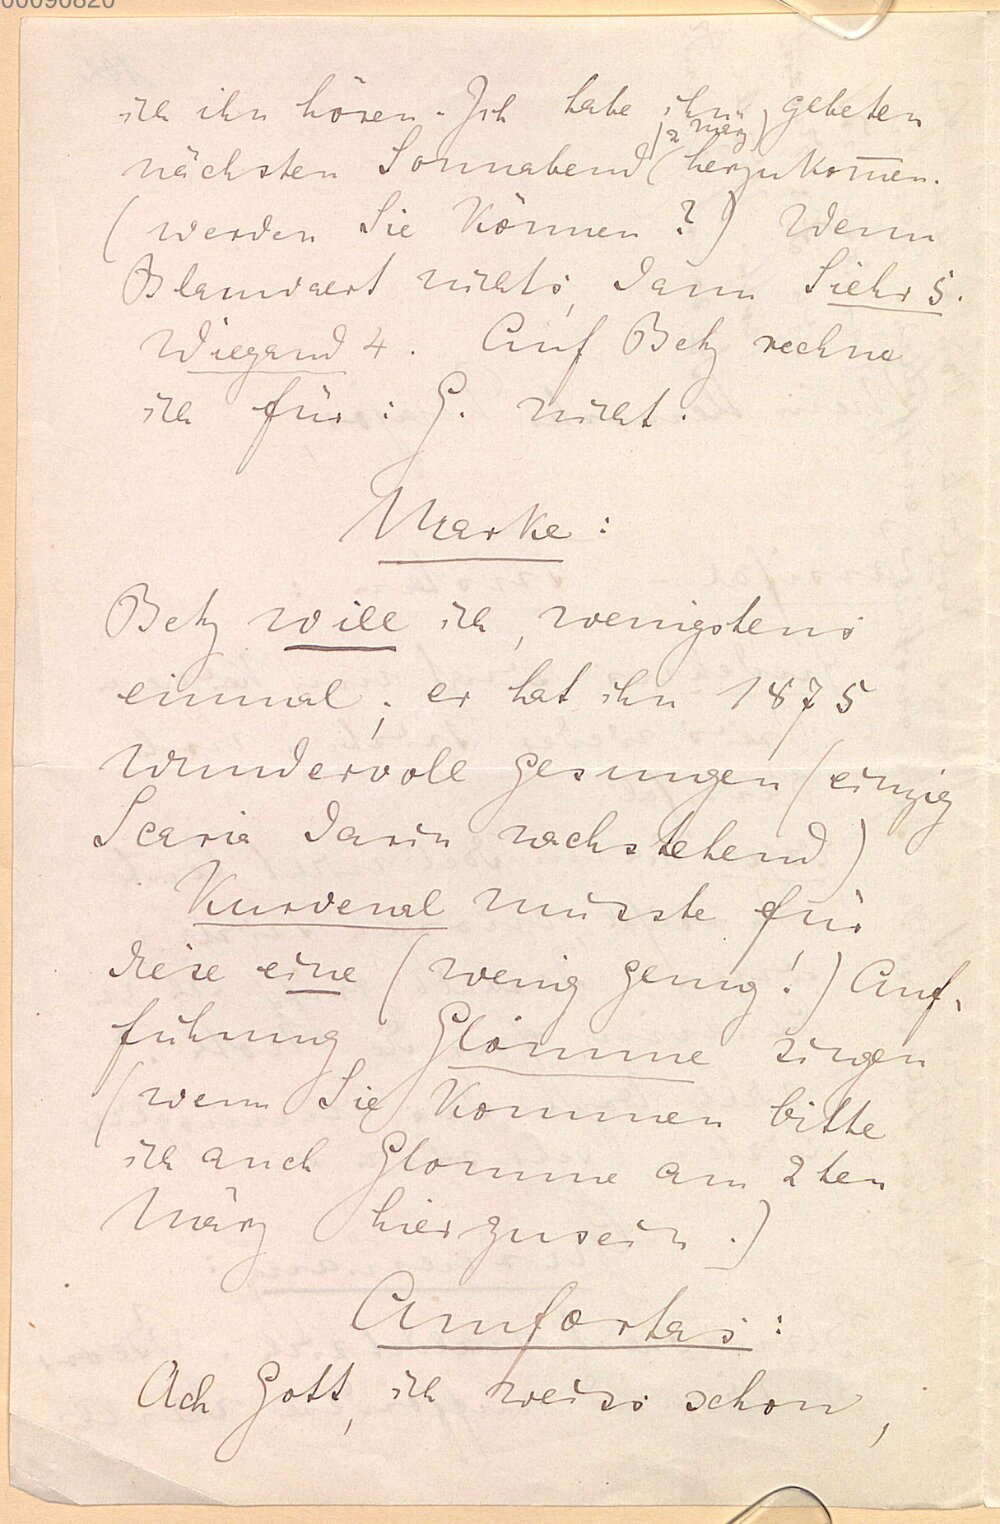 00090820
ich ihn hören. Ich habe ihn gebeten
(2 März)
nächsten Sonnabend herzukommen.
(werden Sie können?) Wenn
Blauwaert nichts, dann Siehr 5.
Wiegand 4. Auf Betz rechne
ich für: G. nicht.
Marke:
Betz will ich, wenigstens
einmal; er hat ihn 1875
wundervoll gesungen (einzig
Scaria darin nachstehend)
Kurvenal müsste für
diese eine (wenig genug!) Auf-
führung Glomme singen
(wenn Sie kommen bitte
ich auch Glomme am 2ten
März hierzusein.)
Amfortas:
Ach Gott, ich weiss schon,